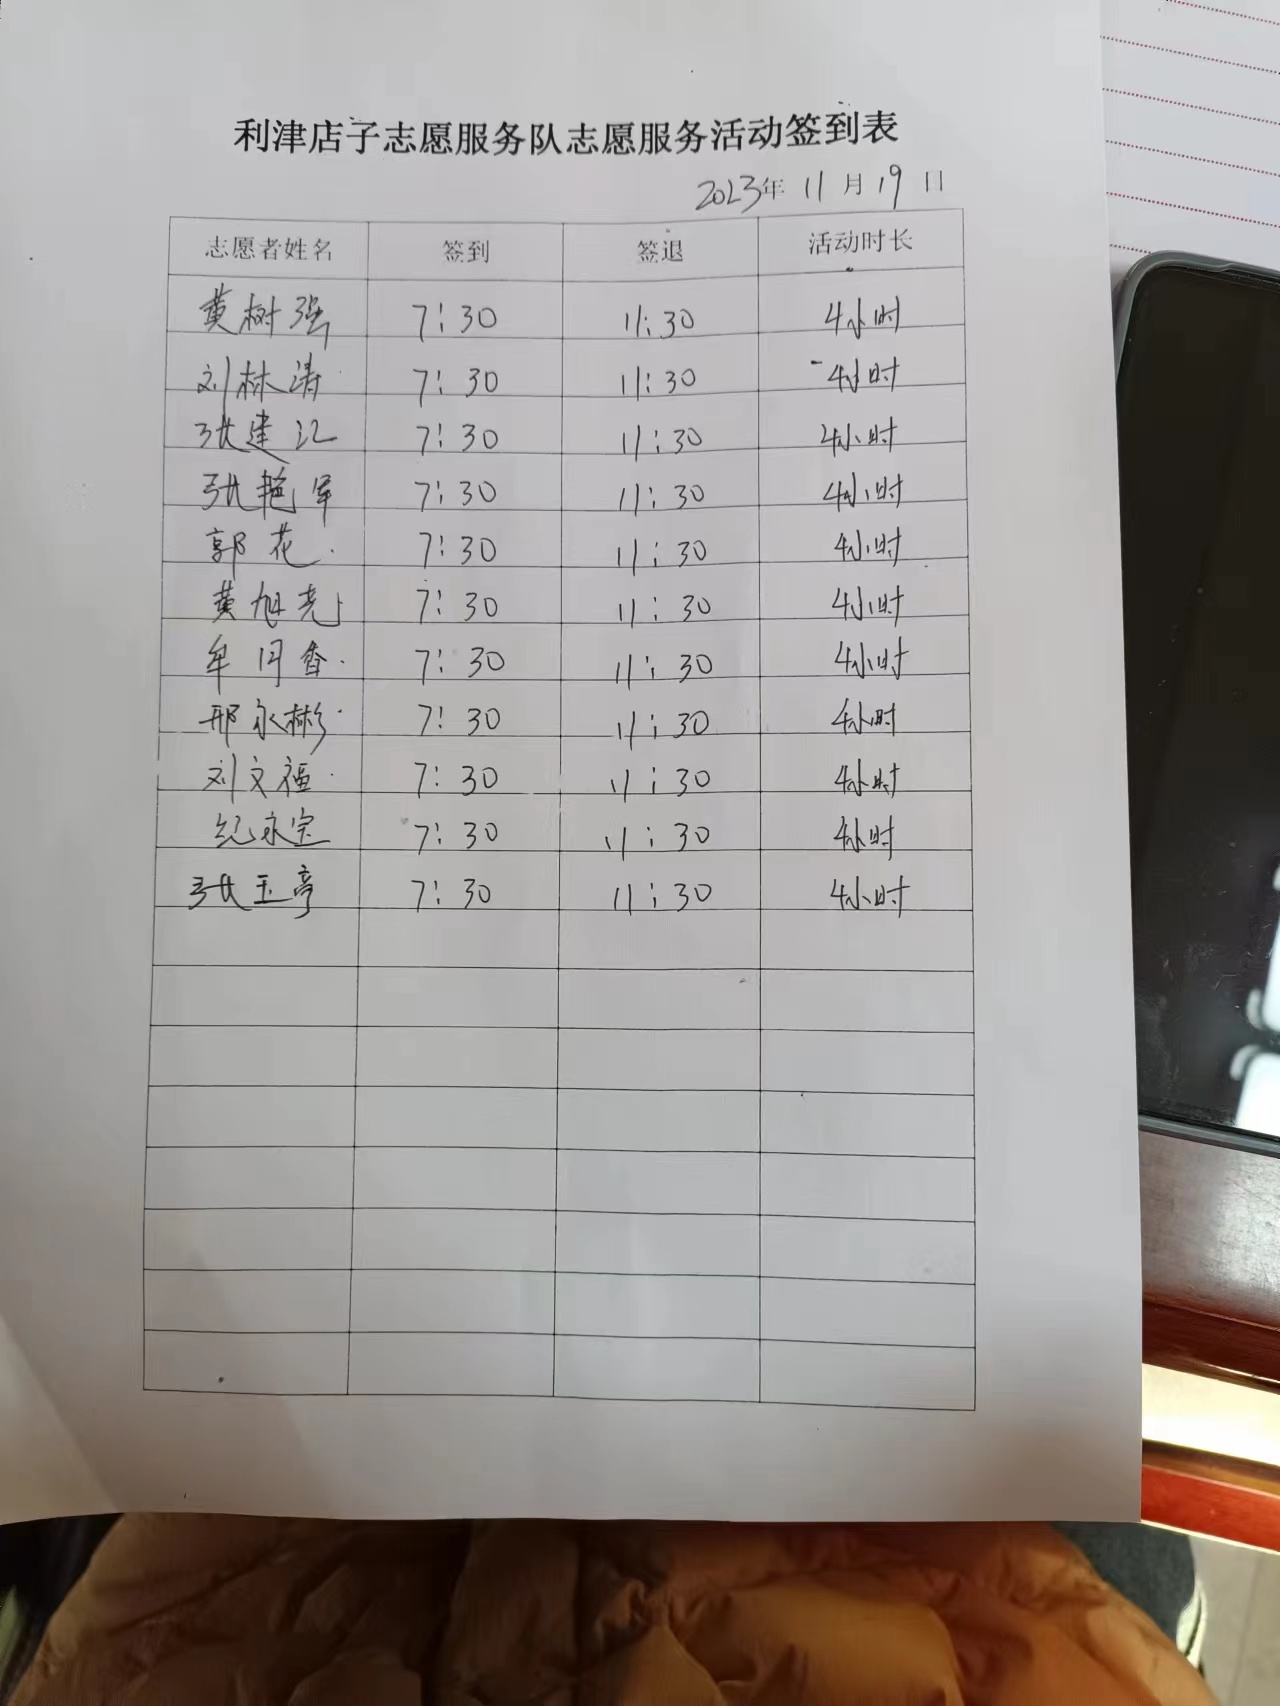 利津店子志愿服务队志愿服务活动签到表
2023年 11月 19日
志愿者姓名 签到 签退 活动时长
黄树强 7:30 11:30 4小时
刘林涛 7:30 11:30 4小时
张建江 7:30 11:30 4小时
张艳军 7:30 11:30 4小时
郭花 7:30 11:30 4小时
黄旭亮 7:30 11:30 4小时
牟月香 7:30 11:30 4小时
邢永彬 7:30 11:30 4小时
刘文福 7:30 11:30 4小时
纪永宝 7:30 11:30 4小时
张玉亭 7:30 11:30 4小时